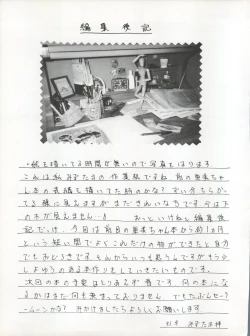 編集後記
・絵を描いてる時間が無いので写真をはります
これは私みずたまの作業机ですね 前の亜東ちゃ
ん本の表紙を描いてた時のかな? ずい分ちらかっ
てる様に見えますがまだきれいな方です。今は下
の木が見えません おっといけねと編集後
記だっけ、今回は前回の亜東ちゃん本から約1ヶ月
という短い間でよくこれだけの物ができたと自分
でもおどろきです
しゅうのある本作りもしていきたいものです。
次回の本の予定はとりあえず春です。何の本にな
るかはまだ何も決まっておりません。でもたぶんセーラ
ームーンかな? 引かけましたらよろしくお願いします
みずたま